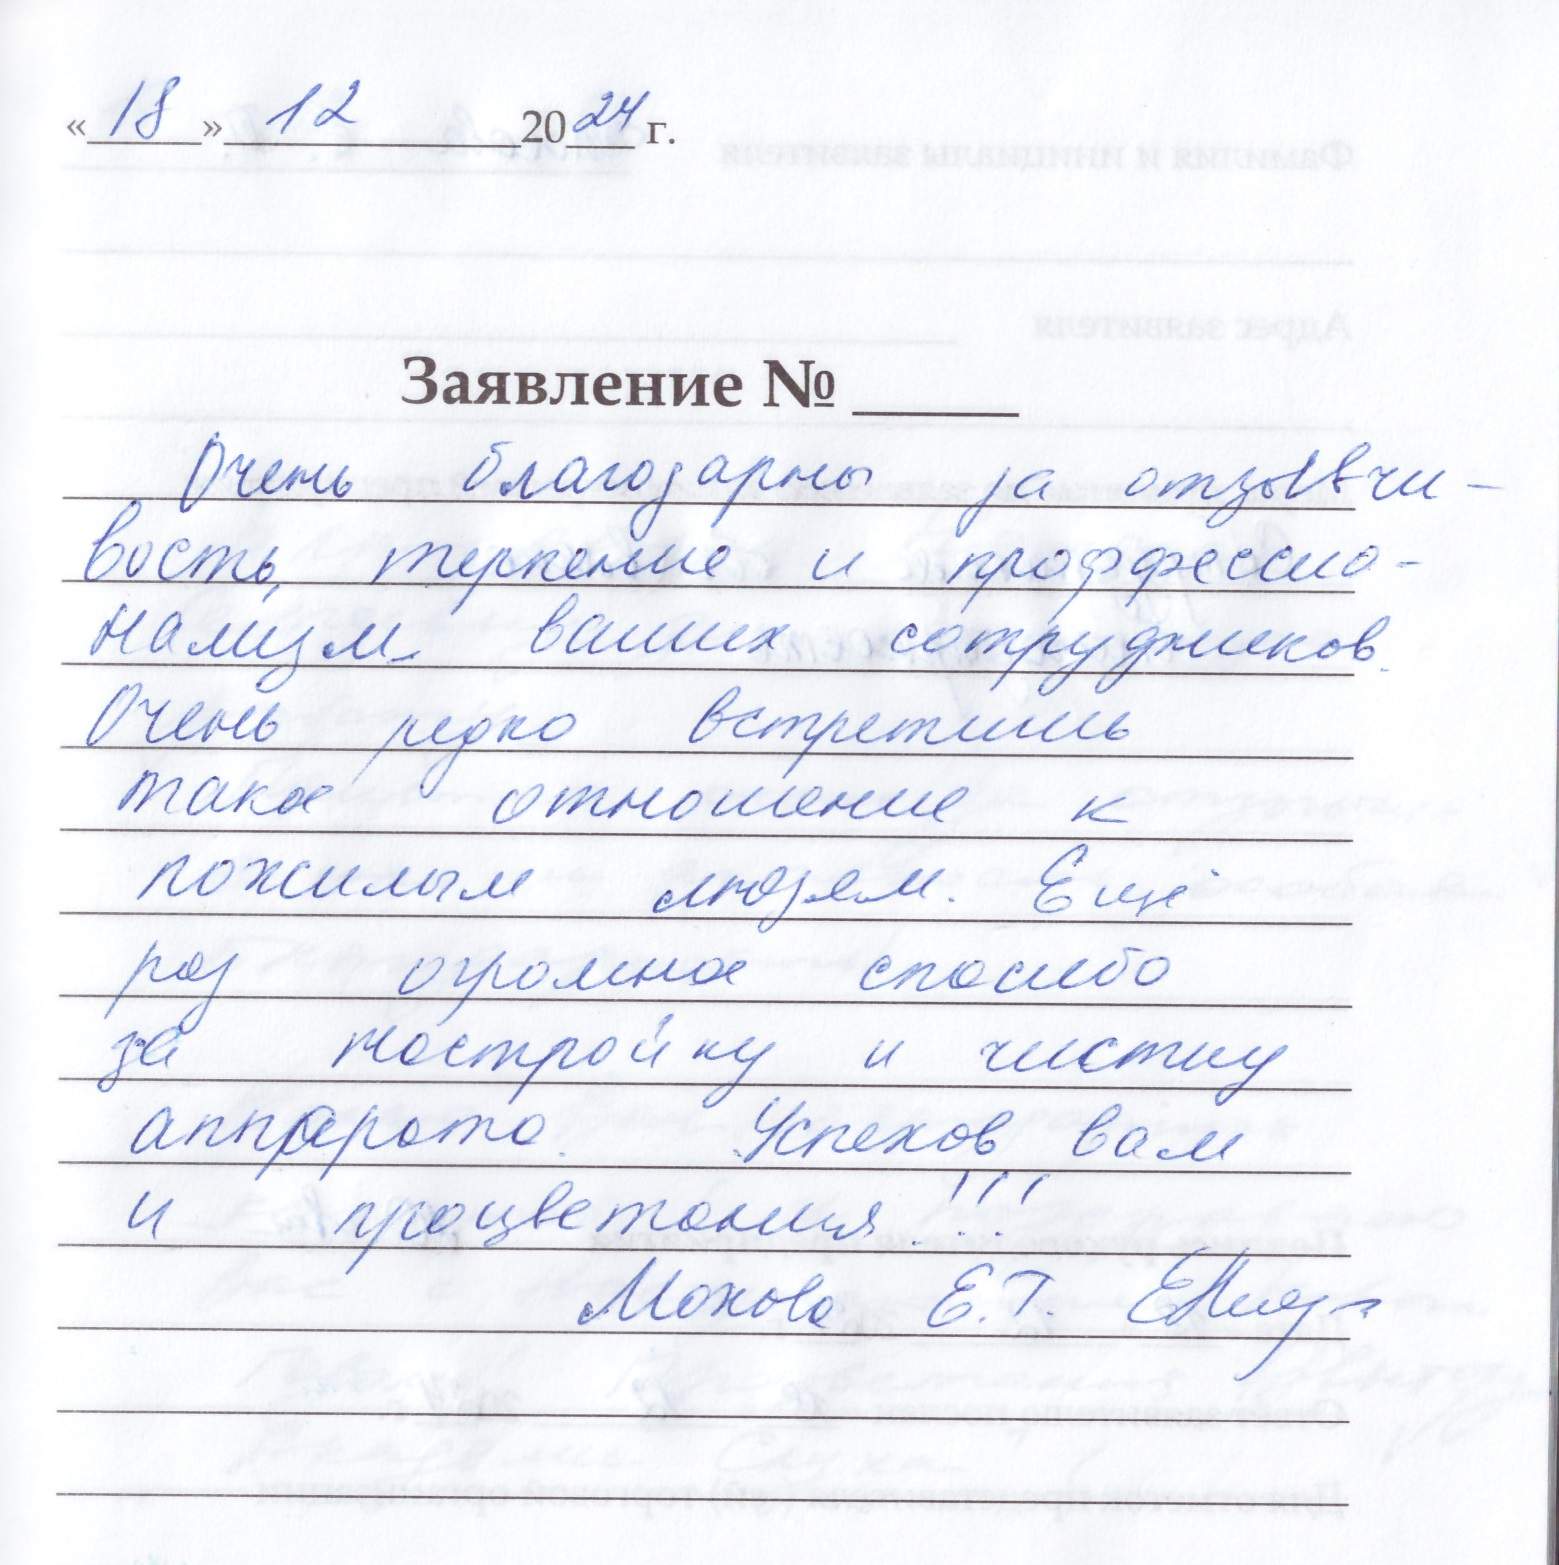 «18» 12 2024 г.
Заявление №
Очень благодарны за отзывчи-
вость, терпение и проффессио-
нализм ваших сотрудников.
Очень редко встретишь
такое отношение к
пожилым людям. Ещё
раз огромное спасибо
за настройку и чистку
аппарата. Успехов вам
и процветания!!!
Мохова Е.Г.